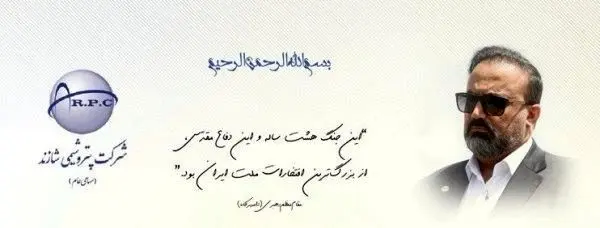 بسم الله الرحمن الرحیم
A.R.P.C
شرکت پتروشیمی شازند
(سهامی عام)
"این جنگ هشت ساله و این دفاع مقدس
از بزرگترین افتخارات ملت ایران بود."
مقام معظم رهبری (مدظله العالی)